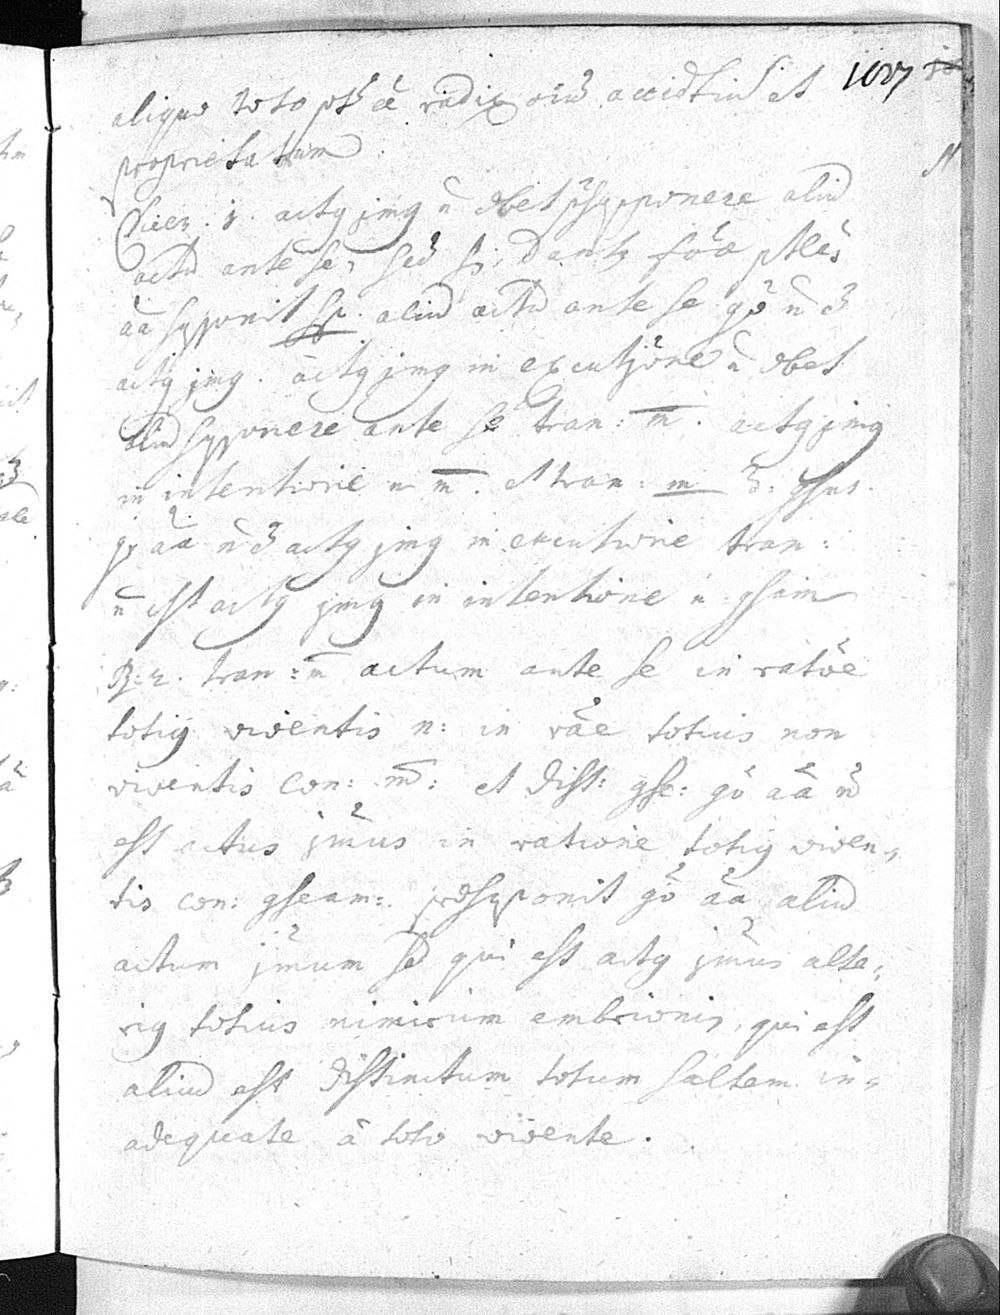 107
aliquo toto pt ee radix oiu accidtiu et
proprietatum
Dices. 1. actq jmq n dbet psupponere aliud
actu ante se, sed si. dantq foae ptles
aa supponit sp. aliud actu ante se go n e
actq jmq. actq jmq in excutjone n dbet
aliud supponere ante se tran: m. actq jmq
in intentione n m. et tran: m d: gsns.
go aa n e actq jmq in excutione tran:
n est actq jmq in intentione n: gsam
R. 2. tran: m actum ante se in ratoe
totiq viventis n: in rae totius non
viventis con: m: et dist: gse: go aa n
est actus jmus in ratione totiq viven,,
tis con: gseam: psupponit go aa aliud
actum jmum sed qui est actq jmus alte,,
riq totius nimirum embrionis, qui est
aliud est distinctum totum saltem in=
adequate a toto vivente.